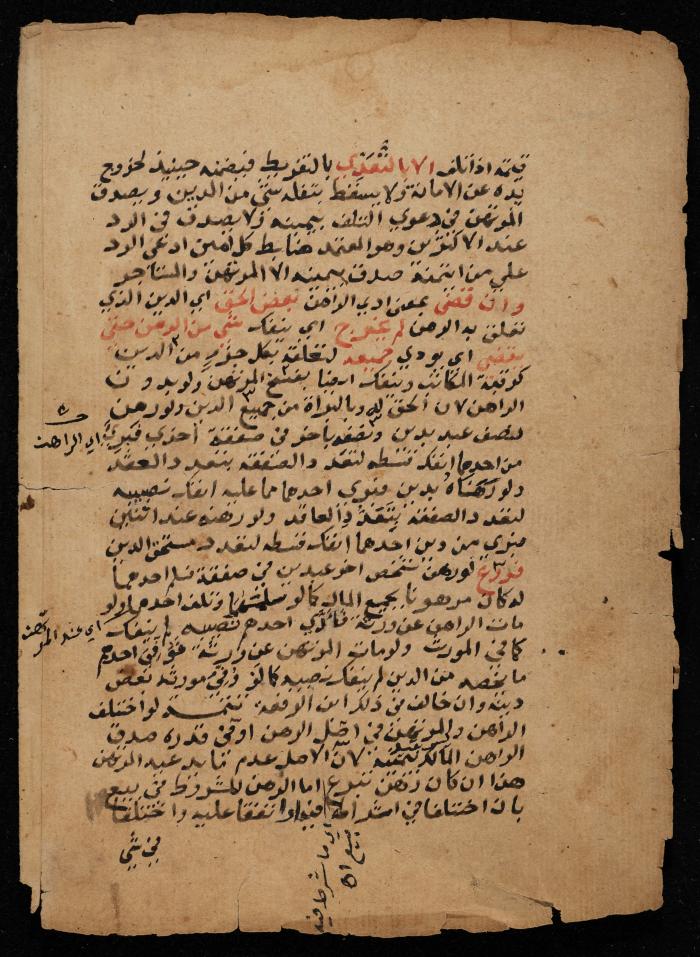 قيمته اذا تلف الا بالتعدي بالتفريط فيضمنه حينيذ لخروج
يده عن الامانة ولا يسقط بتلفه شي من الدين ويصدق
المرتهن في دعوي التلف بيمينه ولا يصدق في الرد
عند الاكثرين وهو المعتمد ضابط كل امين ادعى الرد
علي من ائتمنه صدق بيمينه الا المرتهن والمستاجر
واذا قضى بمعنى ادي الراهن بعض الحق اي الدين الذي
تعلق به الرهن لم يخرج اي ينفك شي من الرهن حتى
يقضى اي يودي جميعه لتعلقه بكل جزء من الدين
كرقبة المكاتب وينفك ايضا بفسخ المرتهن ولو بدون
الراهن لان الحق له وبالبراة من جميع الدين ولو رهن
نصف عبد بدين ونصفه باخر في صفقة اخري فبري
اي الراهن
من احدهما انفك قسطه لتعدد الصفقة بتعدد العقد
ولو رهناه بدين فبري احدهما مما عليه انفك نصيبه
لتعدد الصفقة بتعدد العاقد ولو رهنه عند اثنين
فبري من دين احدهما انفك قسطه لتعدد مستحق الدين
فروع لو رهن شخص اخر عبدين في صفقة فسلم احدهما
له كان مرهونا بجميع المال كما لو سلمهما وتلف احدهما ولو
مات الراهن عن ورثة فادي احدهم نصيبه لم ينفك
اي عند المرتهن
كما في المورث ولو مات المرتهن عن ورثة فوفى احدهم
ما يخصه من الدين لم ينفك نصيبه كما لو وفي مورثه بعض
دينه وان خالف في ذلك ابن الرفعة تتمة لو اختلف
الراهن والمرتهن في اصل الرهن او في قدره صدق
الراهن المالك بيمينه لان الاصل عدم ما يدعيه المرتهن
هذا ان كان رهن تبرع اما الرهن المشروط في بيع
بان اختلفا في اشتراطه فيه او اتفقا عليه واختلفا
في شي